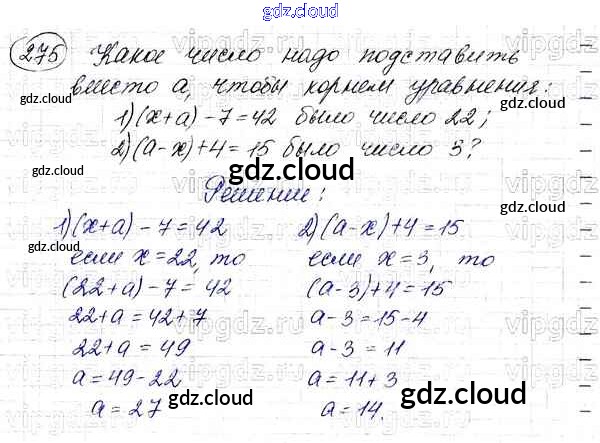 gdz.cloud
275 Какое число надо подставить
вместо а, чтобы корнем уравнения:
1) (х+а) - 7 = 42 было число 22;
2) (а-х)+4 = 15 было число 3?
Решение:
1) (х+а) - 7 = 42
если х = 22, то
(22+а) - 7 = 42
22+а = 42+7
22+а = 49
а = 49-22
а = 27
2) (а-х)+4 = 15
если х = 3, то
(а-3)+4 = 15
а-3 = 15-4
а-3 = 11
а = 11+3
а = 14.
gdz.cloud
gdz.cloud
gdz.cloud
gdz.cloud
gdz.cloud
gdz.cloud
gdz.cloud
gdz.cloud
gdz.cloud
vipgdz.ru
vipgdz.ru
vipgdz.ru